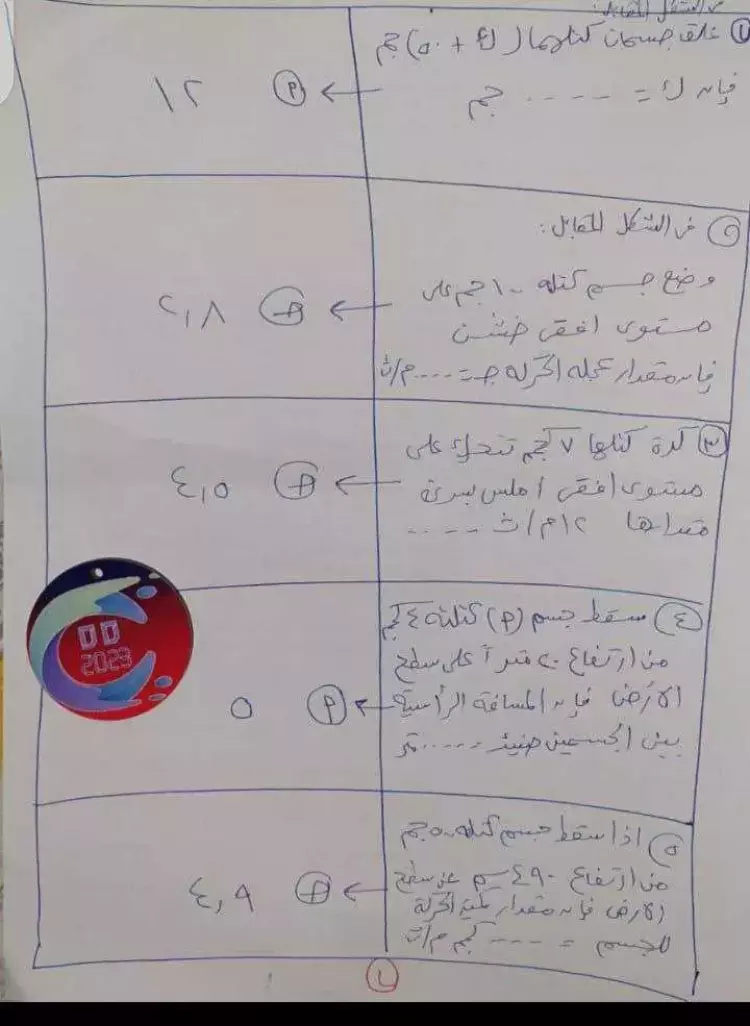 في الشكل المقابل:
① علق جسمان كتلتاهما (ك + ٥٠) جم
فإن ك = ---- جم
← Ⓟ ١٢
② في الشكل المقابل:
وضع جسم كتلته ١٠٠ جم على
مستوى افقى خشن
فإن مقدار عجلة الحركة جـ = ---- م/ث
← ٢,٨
③ كرة كتلتها ٧ كجم تتحرك على
مستوى افقى املس بسرعة
مقدارها ١٢ م/ث ----
← ٤,٥
④ سقط جسم (P) كتلته ٤ كجم
من ارتفاع ٢٠ متراً على سطح
الأرض فإن المسافة الرأسية
بين الجسمين حينئذ ---- متر
← Ⓟ ٥
⑤ اذا سقط جسم كتلته ٥٠٠ جم
من ارتفاع ٤٩٠ سم عن سطح
الارض فإن مقدار كمية الحركة
للجسم = ---- كجم م/ث
← ٤,٩
DD
2023